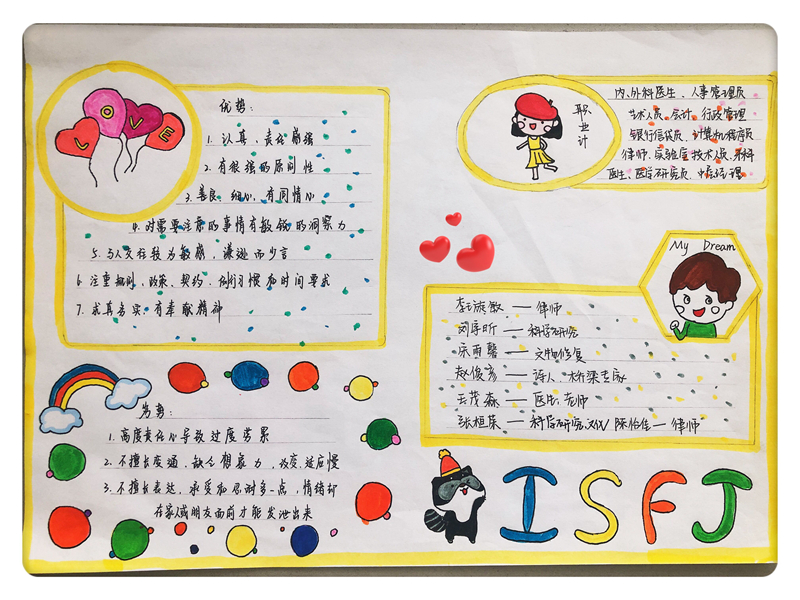 LOVE
优势:
1. 认真、责任感强
2. 有很强的原则性
3. 善良、细心、有同情心
4. 对需要注意的事情有敏锐的洞察力
5. 与人交往较为敏感，谦逊而少言
6. 注重规则、政策、契约、例行习惯和时间要求
7. 求真务实，有奉献精神
职业计
内、外科医生、人事管理员
艺术人员、会计、行政管理
银行信贷员、计算机程序员
律师、实验室技术人员、牙科
医生、医学研究员、中层经理
My Dream
律师
科学研究
宋雨馨——文物修复
赵俊彦——诗人、桥梁专家
王茂森——医生、老师
张桓荣——科学研究 律师
劣势:
1. 高度责任心导致过度劳累
2. 不擅长变通，缺乏想象力，改变适应慢
3. 不擅长表达，承受和忍耐多一点，情绪却
在家人或朋友面前才能发泄出来
ISFJ